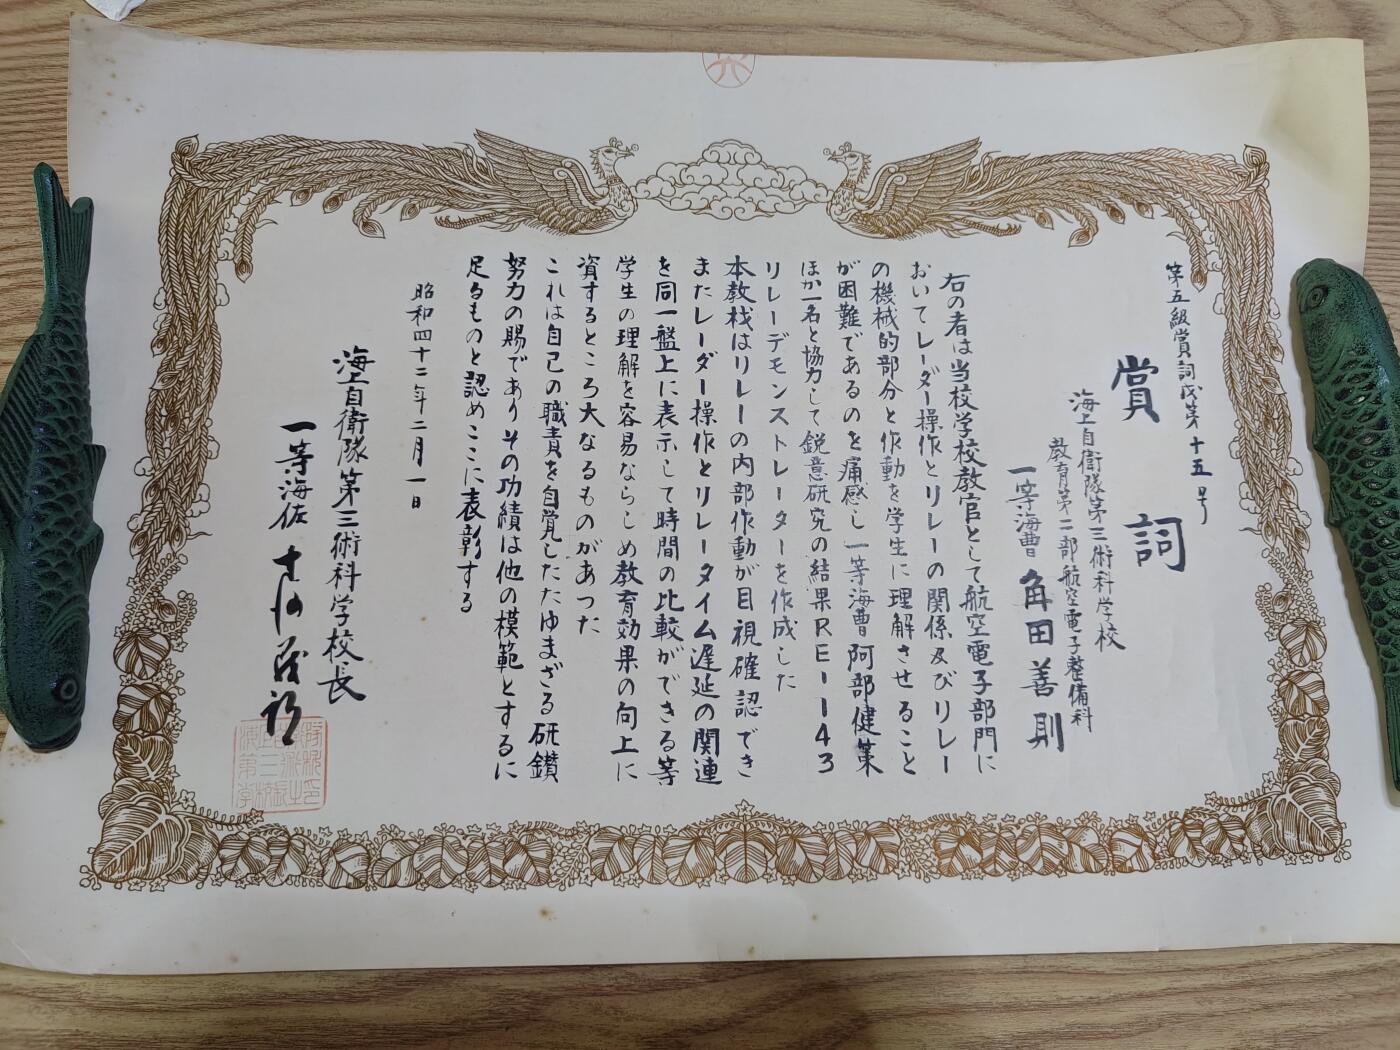 第五級賞詞 第十五号
賞詞
海上自衛隊第三術科学校
教育第二部航空電子整備科
一等海曹 角田善則
右の者は当校学校教官として航空電子部門に
おいてレーダー操作とリレーの関係及びリレー
の機械的部分と作動を学生に理解させること
が困難であるのを痛感し一等海曹阿部健策
ほか一名と協力して鋭意研究の結果REー143
リレーデモンストレーターを作成した
本教材はリレーの内部作動が目視確認でき
またレーダー操作とリレータイム遅延の関連
を同一盤上に表示して時間の比較ができる等
学生の理解を容易ならしめ教育効果の向上に
資するところ大なるものがあつた
これは自己の職責を自覚したたゆまざる研鑚
努力の賜でありその功績は他の模範とするに
足るものと認めここに表彰する
昭和四十二年二月一日
海上自衛隊第三術科学校長
一等海佐